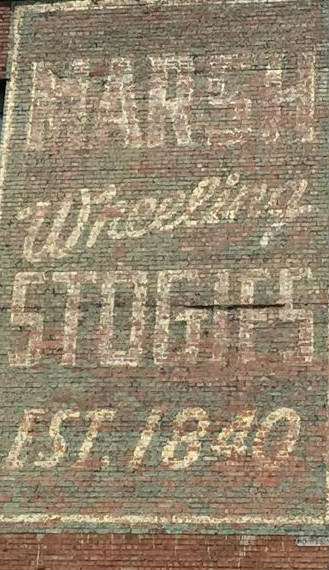 MARSH
Wheeling
STOGIES
EST. 1840